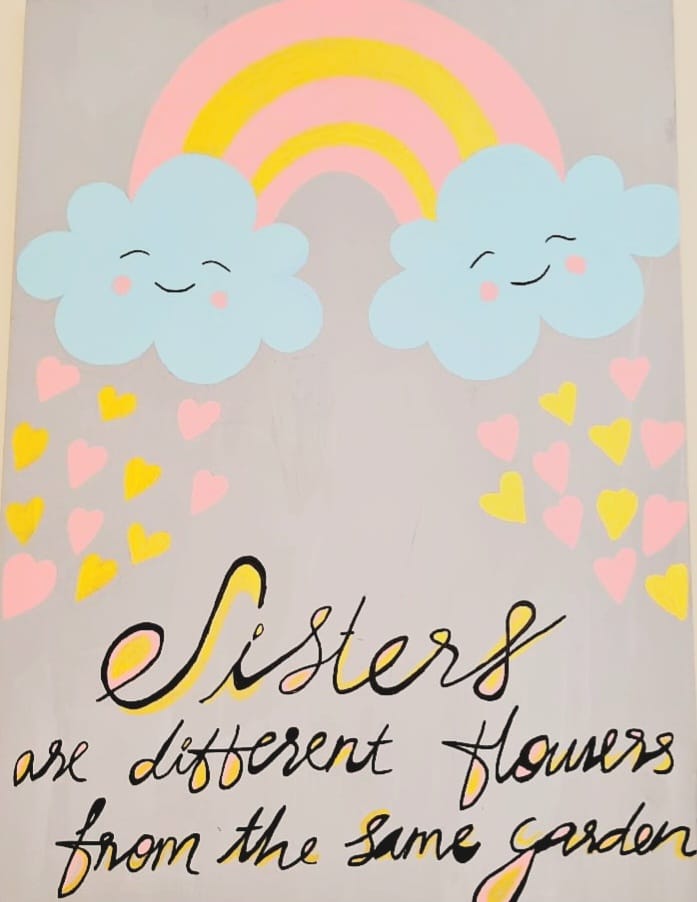 Sisters
are different flowers
from the same garden